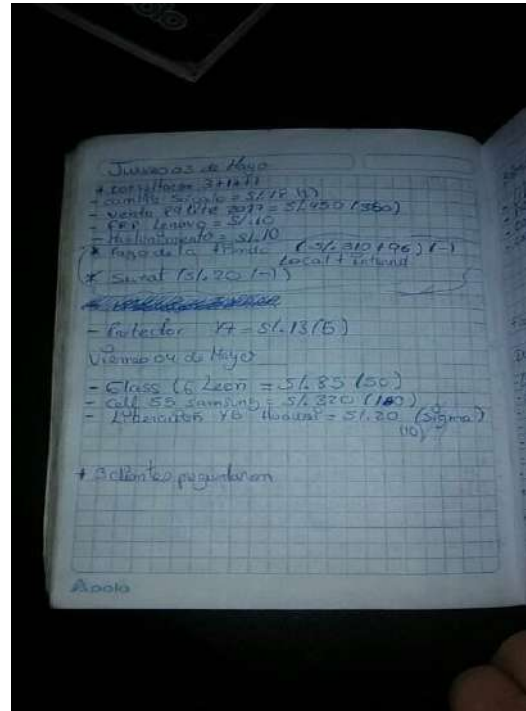 Jueves 03 de Mayo
+ consultaron 3+1+1+1
- cambio = S/. 18
- venta P9 lite 2017 = S/. 950 (360)
- FRP Lenovo = S/. 10
- Mantenimiento = S/. 10
* Pago de la tienda (-S/. 310 / 96) (-)
Local + Internet
* Sunat (S/. 20 /-)
- Protector Y7 = S/. 13 (5)
Viernes 04 de Mayo
- Glass (6 León = S/. 85 (50)
- Cell S5 Samsung = S/. 320 (100)
- Liberación Y6 Huawei = S/. 20 (Sigma)
(10)
+ 3 clientes preguntaron
Apolo